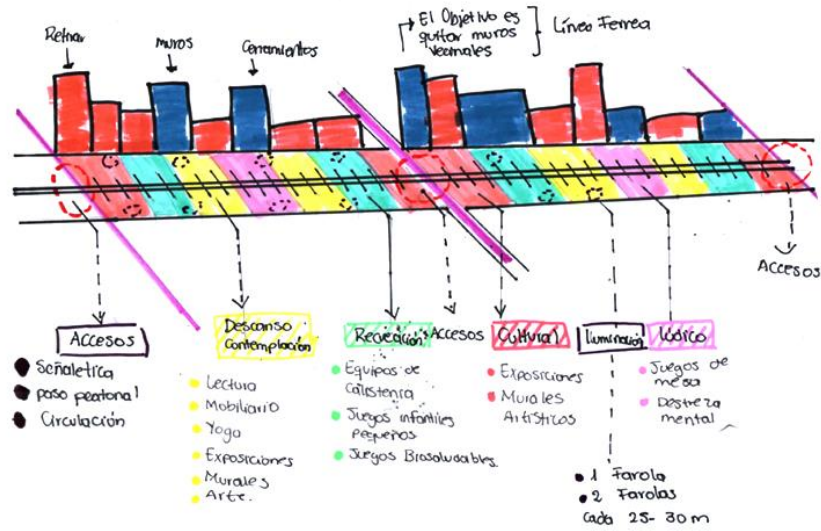 Retirar
muros
Cerramientos
El Objetivo es
quitar muros
vecinales
Línea Ferrea
ACCESOS
Accesos
Señaletica
paso peatonal
Circulación
Descanso
Contemplación
Lectura
Mobiliario
Yoga
Exposiciones
Murales
Arte.
Recreación
Equipos de
Calistenia
Juegos infantiles
pequeños
Juegos Biosaludables
Accesos
Cultural
Exposiciones
Murales
Artísticos
Iluminación
1 Farola
2 Farolas
Cada 25-30 m
Lúdico
Juegos de
mesa
Destreza
mental